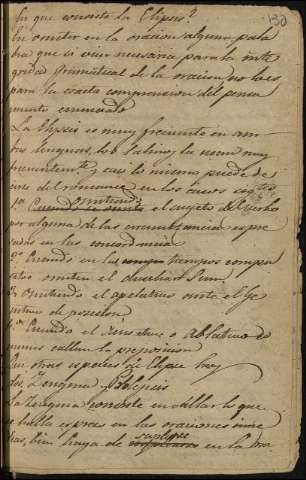 132
En que consiste la Elipsis?
En omitir en la oracion alguna pala
bra que si bien necesaria para la inte
gridad gramatical de la oracion, no lo es
para la exacta comprension del pensa
miento enunciado
La Elipsis es muy frecuente en am
bas lenguas, los latinos la usan muy
frecuentem.te y casi lo mismo puede de
cirse del romance en los casos sig.tes
1º Omitiendo el sugeto del verbo
por alguna de las circunstancias espre
sadas en las concordancia
2º Cuando en los tiempos compu
estos omiten el auxiliar Sum.
3º omitiendo el apelativo rige el Ge
nitivo de posesion
4º Cuando el Acusativo o Ablativo de
callan la preposicion
Que otras especies de Elipse hay
dos, Zeugma y Silepsis
La Zeugma consiste en callar lo que
se halla espreso en las oraciones inme
bien haya de suplirse en la